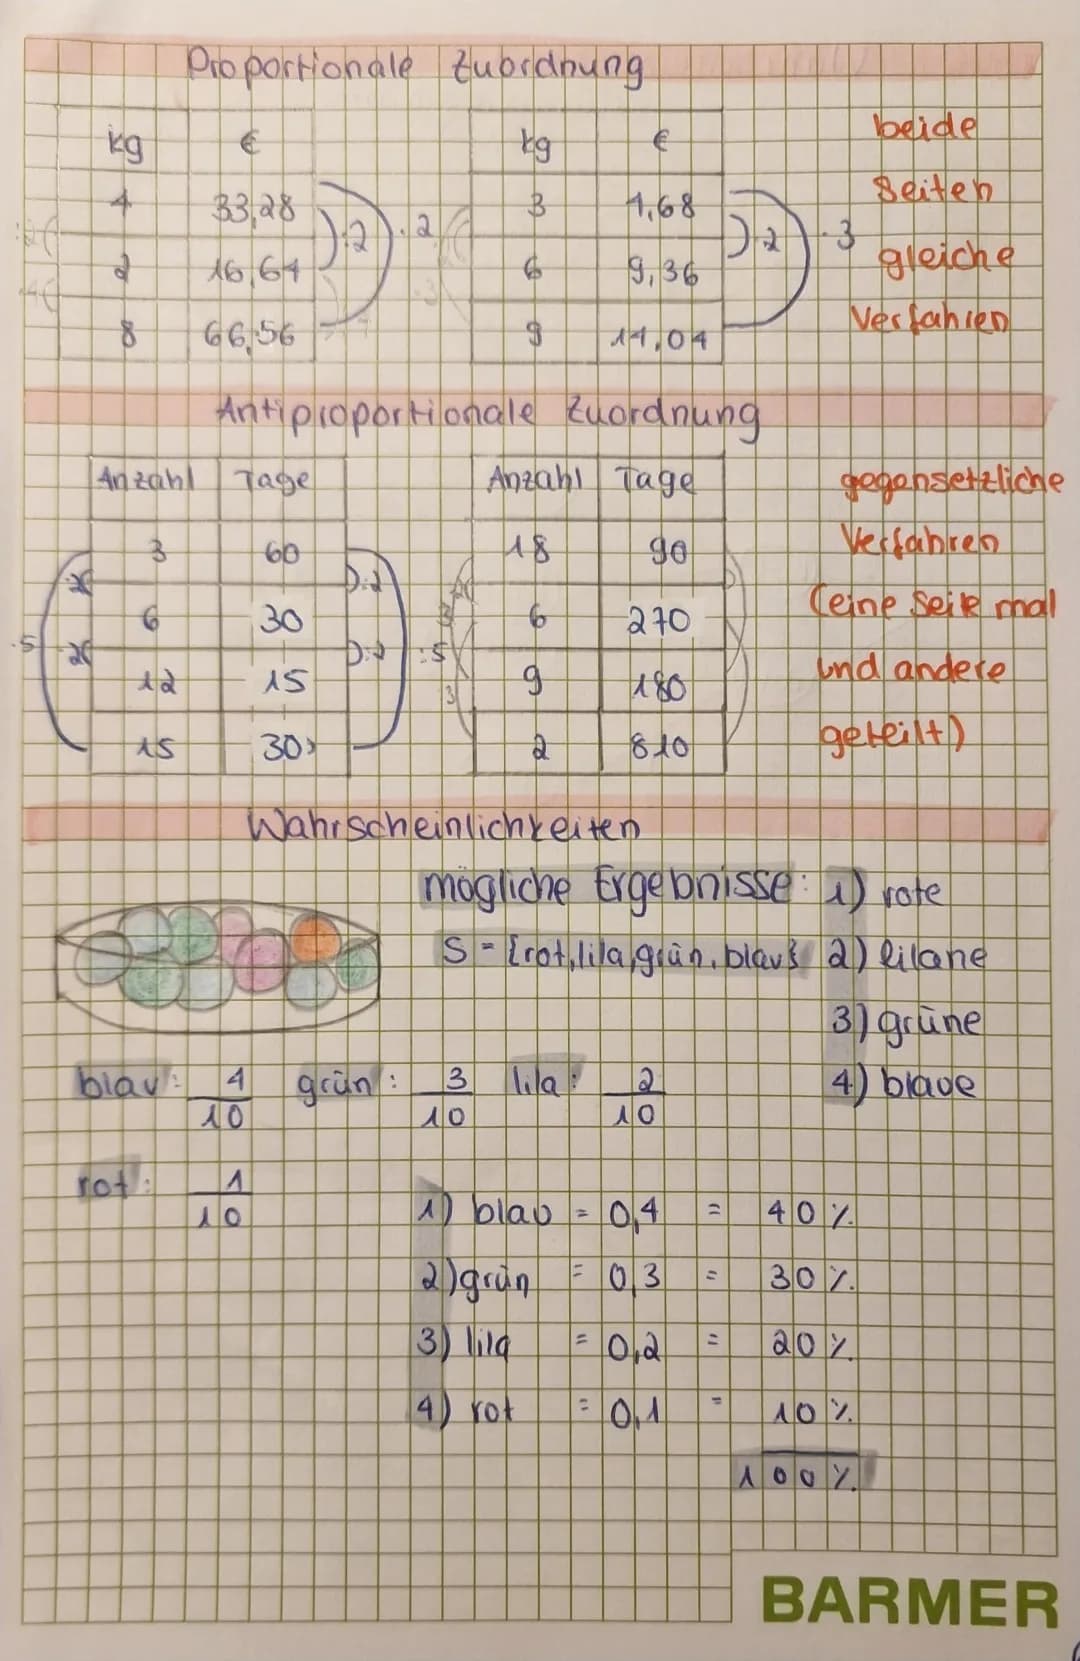 Proportionale Zuordnung
kg € kg € beide
4 33,28 3 4,68 Seiten
:2 · 2 :2 · 3
2 16,64 6 9,36 gleiche
8 66,56 9 14,04 Verfahren
Antiproportionale Zuordnung
Anzahl Tage Anzahl Tage gegensetzliche
3 60 18 90 Verfahren
·2 :2
6 30 6 270 (eine Seite mal
·5 ·2 :2 :5
12 15 9 180 und andere
15 30 2 810 geteilt)
Wahrscheinlichkeiten
mögliche Ergebnisse: 1) rote
S = {rot, lila, grün, blau} 2) lilane
3) grüne
blau: 4/10 grün: 3/10 lila: 2/10 4) blaue
rot: 1/10
1) blau = 0,4 = 40 %
2) grün = 0,3 = 30 %
3) lila = 0,2 = 20 %
4) rot = 0,1 = 10 %
100 %
BARMER